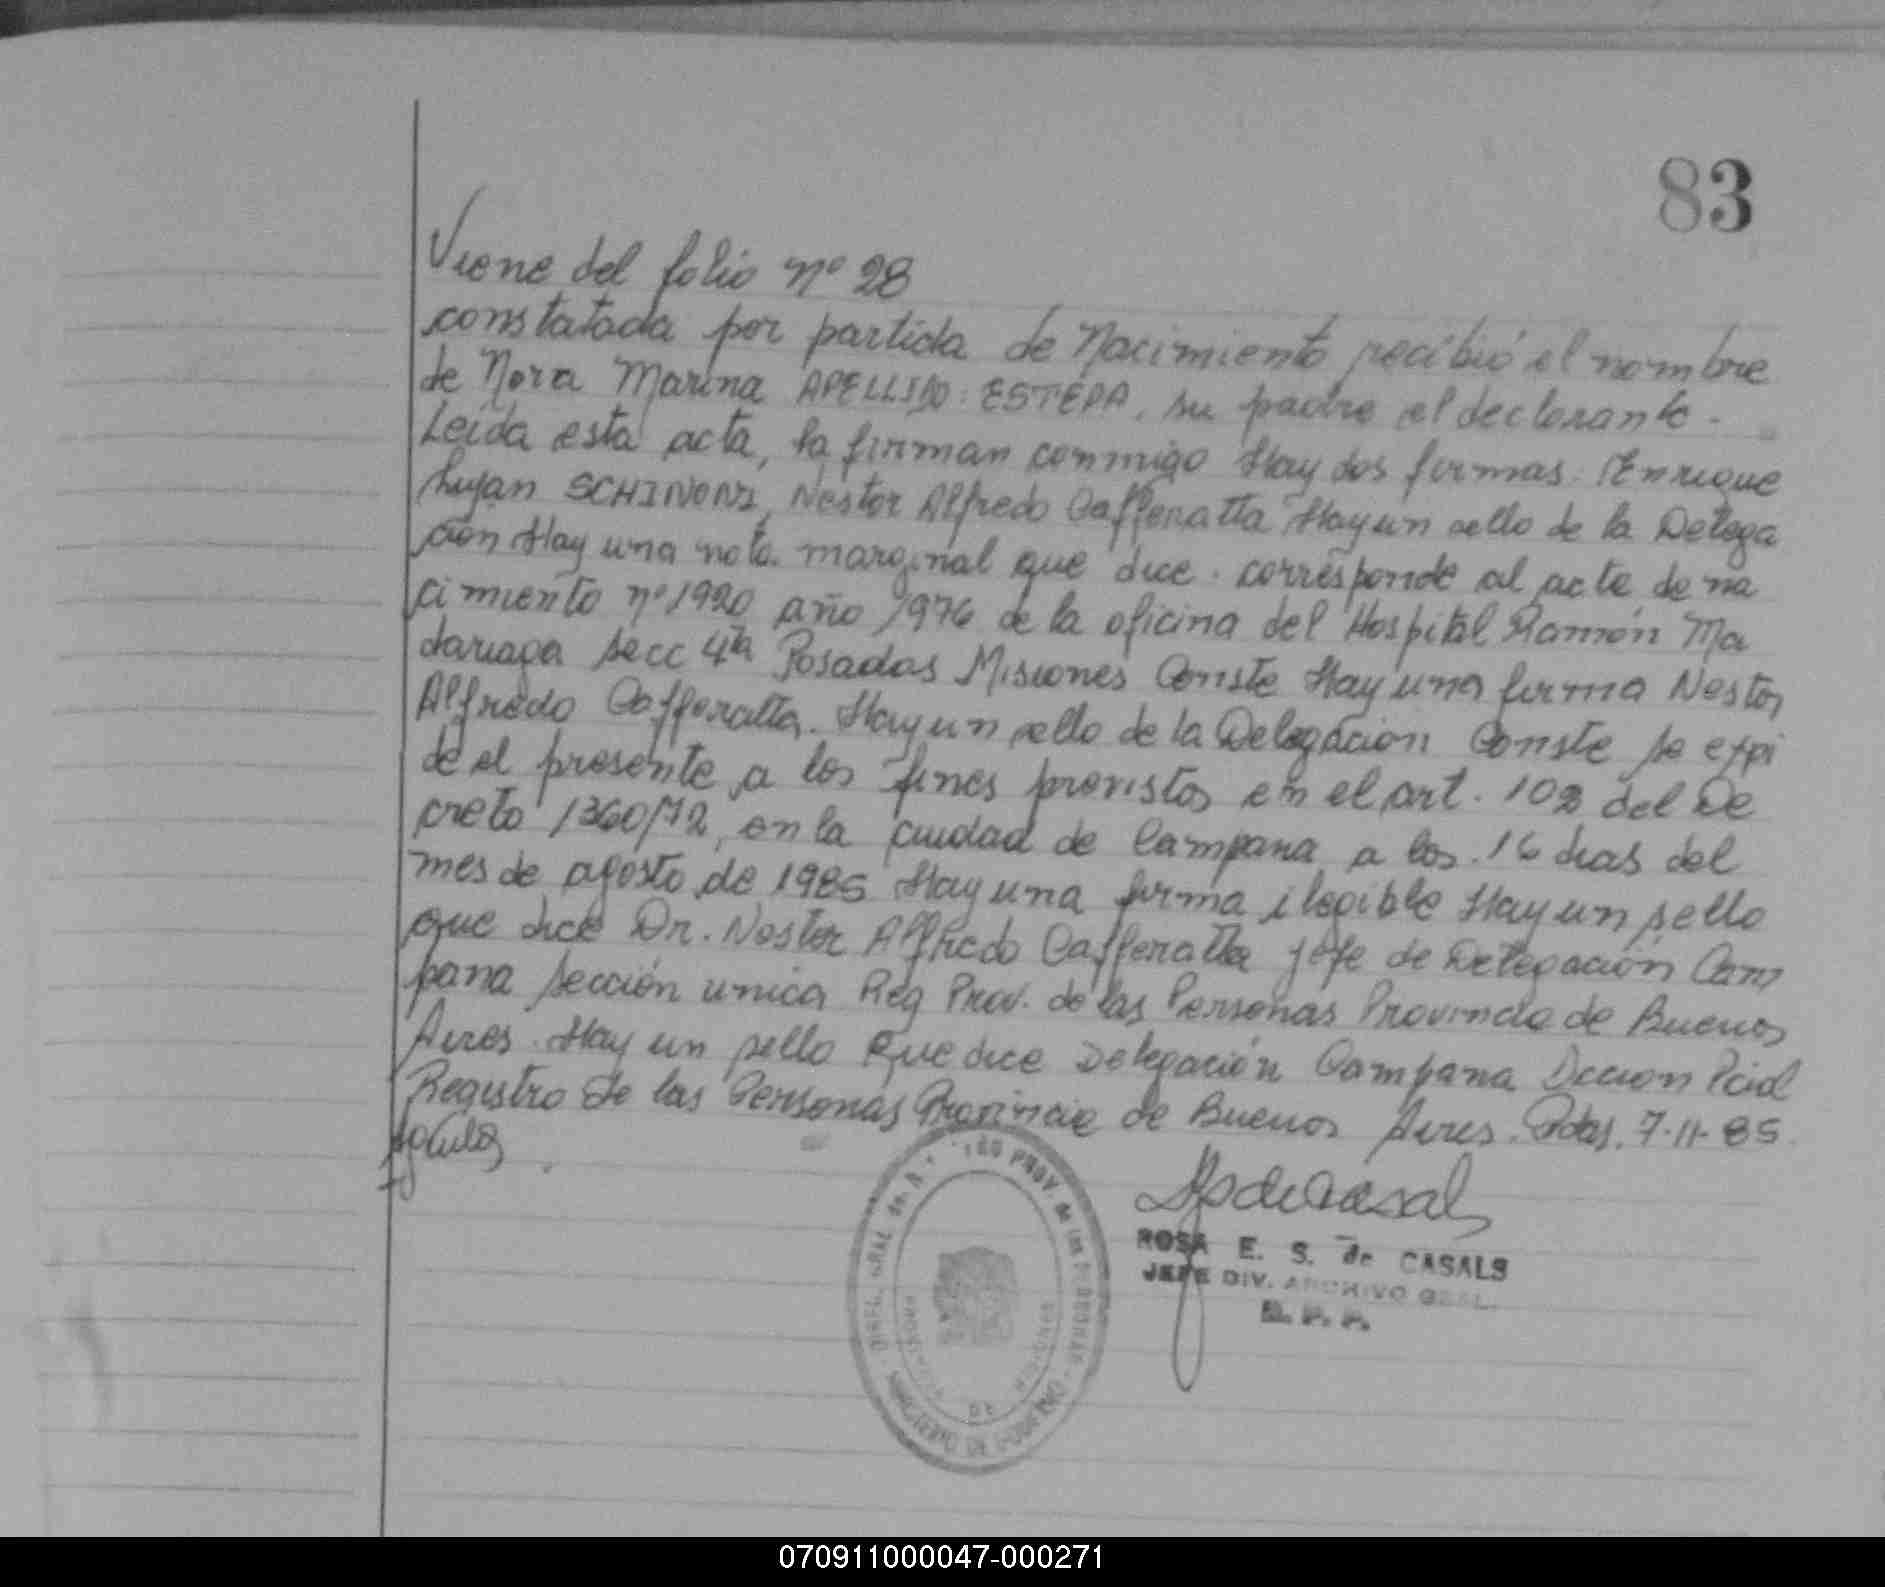 83
Viene del folio nº 28
constatada por partida de Nacimiento recibió el nombre
de Nora Marina APELLIDO: ESTEPA, su padre el declarante.
Leida esta acta, la firman conmigo Hay dos firmas: Enrique
Lujan SCHINONI, Nestor Alfredo Cafferatta Hay un sello de la Delega
ción Hay una nota marginal que dice. corresponde al acta de na
cimiento nº 1920 año 1976 de la oficina del Hospital Ramón Ma
dariaga secc 4ta Posadas Misiones Conste Hay una firma Nestor
Alfredo Cafferatta. Hay un sello de la Delegación Conste se expi
de el presente a los fines previstos en el art. 102 del De
creto 1360/72, en la ciudad de Campana a los 16 dias del
mes de agosto de 1985 Hay una firma ilegible Hay un sello
que dice Dr. Nestor Alfredo Cafferatta jefe de Delegación Cam
pana sección unica Reg Prov. de las Personas Provincia de Buenos
Aires. Hay un sello que dice Delegación Campana Dccion Pcial
Registro de las Personas Provincia de Buenos Aires. Pdas, 7-11-85.
ROSA E. S. de CASALS
JEFE DIV. ARCHIVO GRAL.
PROV. de las PERSONAS
MINISTERIO DE GOBIERNO
070911000047-000271